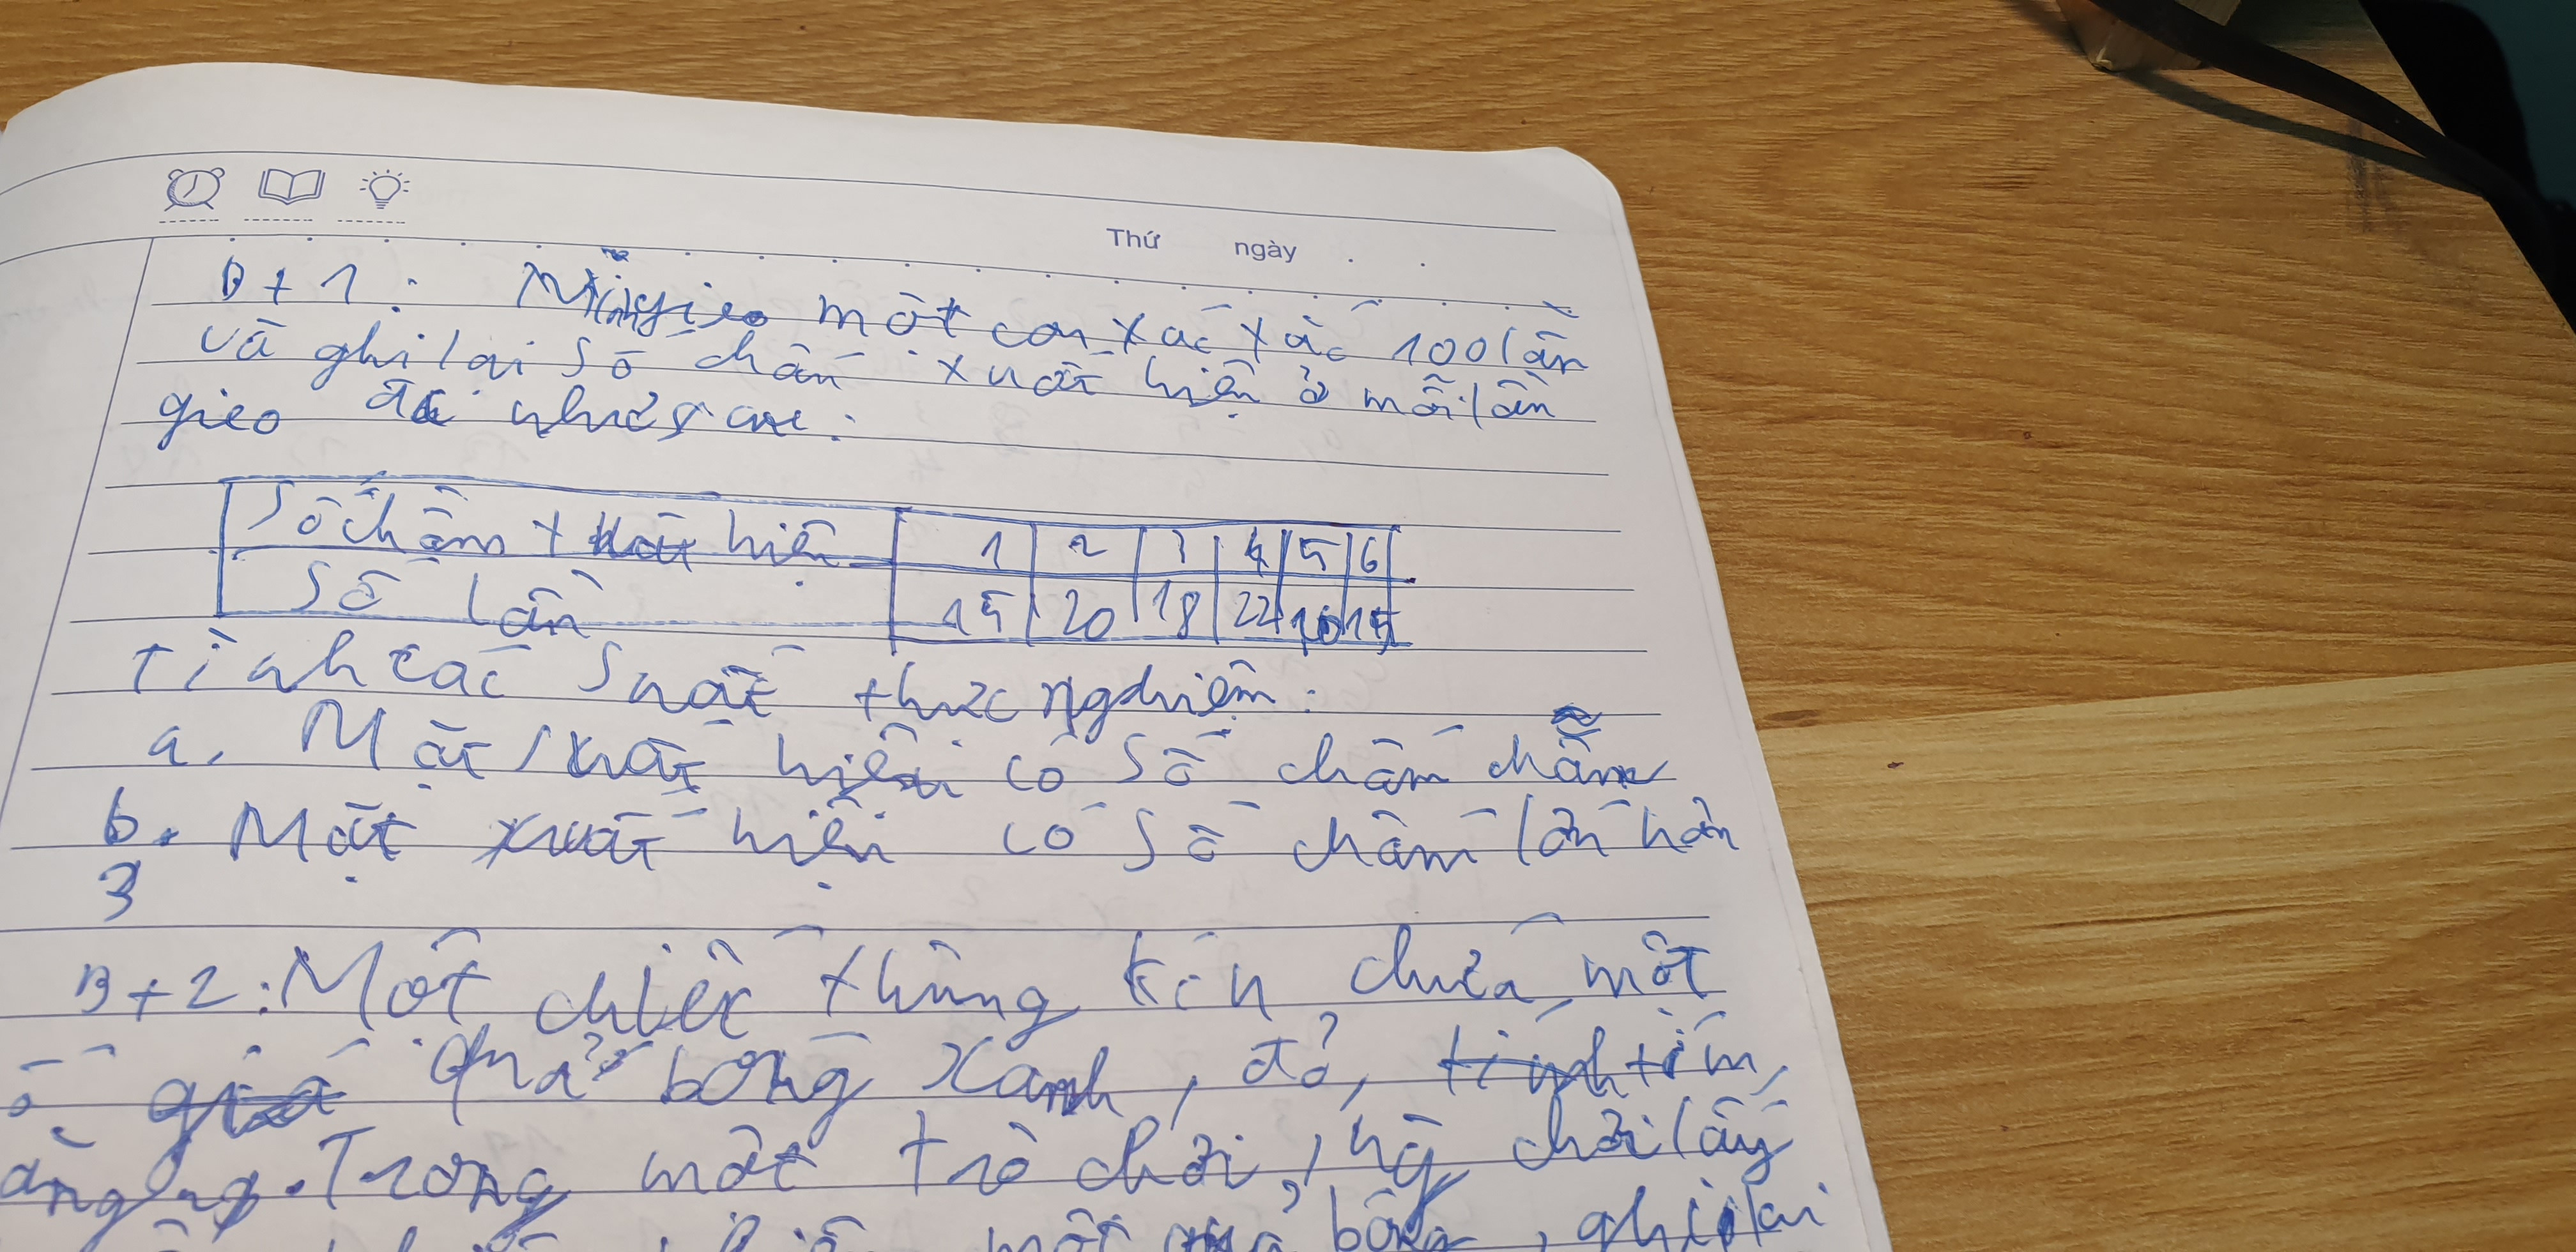 Thứ ngày
Bt 1: Minh gieo một con xúc xắc 100 lần
và ghi lại số chấm xuất hiện ở mỗi lần
gieo đc như sau:
Số chấm xuất hiện 1 2 3 4 5 6
Số lần 15 20 18 22 10 15
Tính các suất thực nghiệm:
a. Mặt xuất hiện có số chấm chẵn
b. Mặt xuất hiện có số chấm lớn hơn
3
Bt 2: Một chiếc thùng kín chứa một
số quả bóng xanh, đỏ, tím,
vàng. Trong một trò chơi, ng chơi lấy
một quả bóng, ghi lại